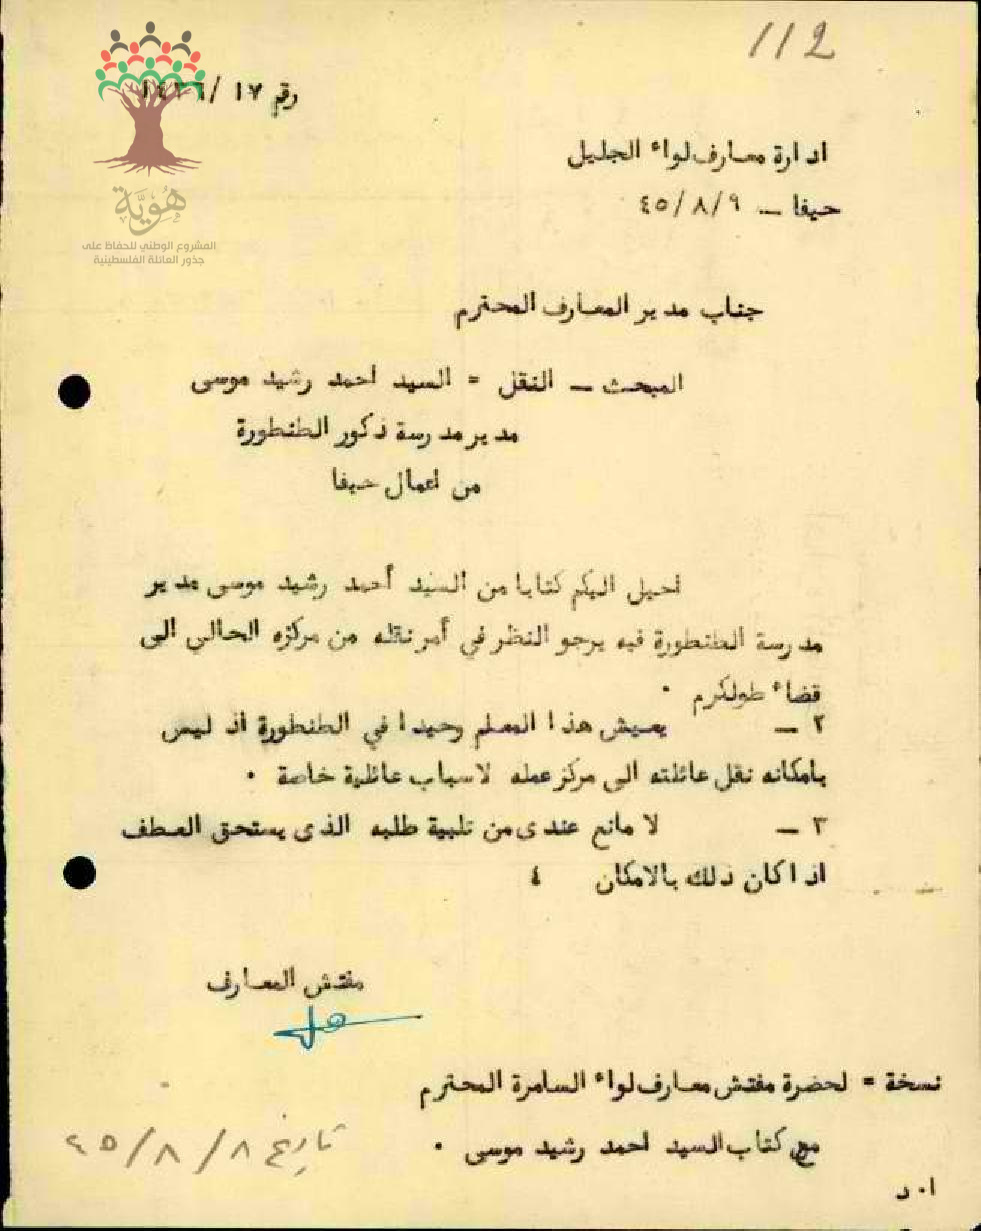 112
رقم ١٧/
ادارة معارف لواء الجليل
حيفا — ٤٥/٨/٩
هُوِيَّة
المشروع الوطني للحفاظ على
جذور العائلة الفلسطينية
جناب مدير المعارف المحترم
المبحث — النقل = السيد احمد رشيد موسى
مدير مدرسة ذكور الطنطورة
من اعمال حيفا
احيل اليكم كتابا من السيد أحمد رشيد موسى مدير
مدرسة الطنطورة فيه يرجو النظر في أمر نقله من مركزه الحالي الى
قضاء طولكرم ٠
٢ — يعيش هذا المعلم وحيدا في الطنطورة اذ ليس
بامكانه نقل عائلته الى مركز عمله لاسباب عائلية خاصة ٠
٣ — لا مانع عندى من تلبية طلبه الذى يستحق العطف
اذا كان ذلك بالامكان ٤
مفتش المعارف
نسخة = لحضرة مفتش معارف لواء السامرة المحترم
مع كتاب السيد احمد رشيد موسى ٠
تاريخ ٤٥/٨/٨
ا٠ د